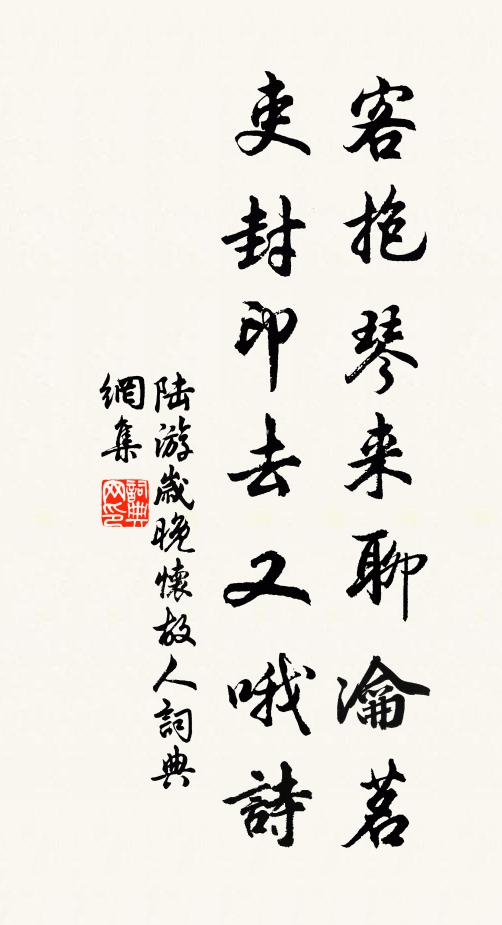 客抱琴来聊瀹茗
吏封印去又哦詩
陆游歲晚懷故人詞典
網集
詞典
网印